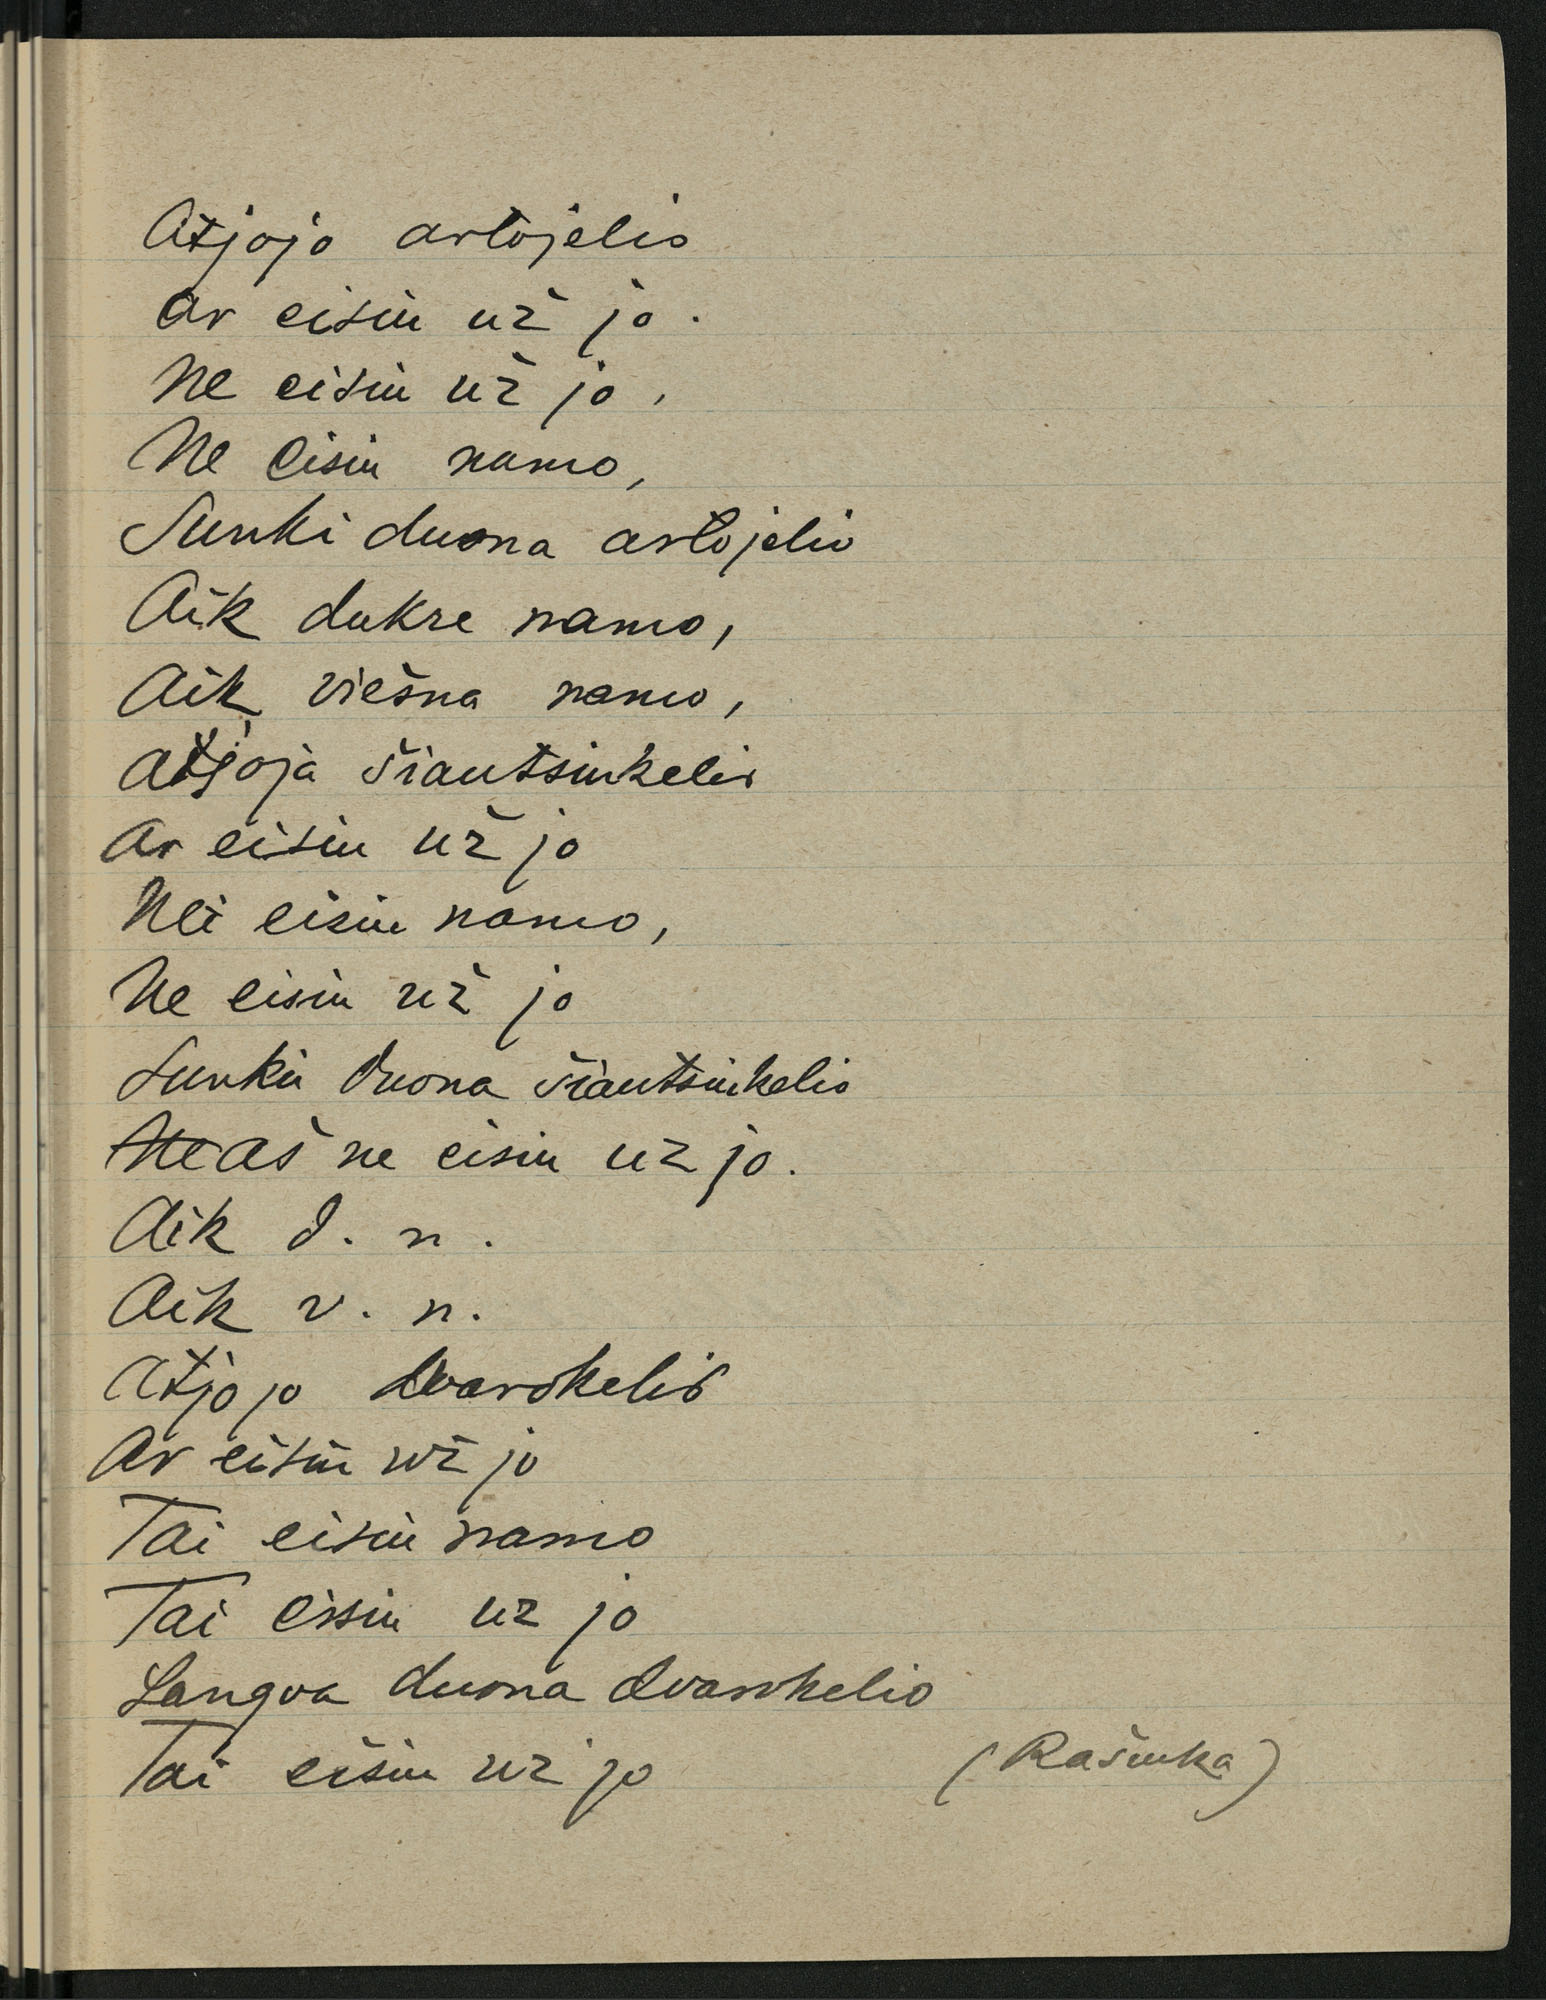 Atjojo artojelis
Ar eisiu už jo.
Ne eisiu už jo,
Ne eisiu namo,
Sunki duona artojelio
Aik dukre namo,
Aik viešna namo,
Atjoja šiautsiukelis
Ar eisiu už jo
Nei eisiu namo,
Ne eisiu už jo
Sunki duona šiautsiukelio
Ne aš ne eisiu uz jo.
Aik d. n.
Aik v. n.
Atjojo dvarokelis
Ar eisiu už jo
Tai eisiu namo
Tai eisiu uz jo
Langva duona dvarokelio
Tai eišiu uz jo (Rašiuka)